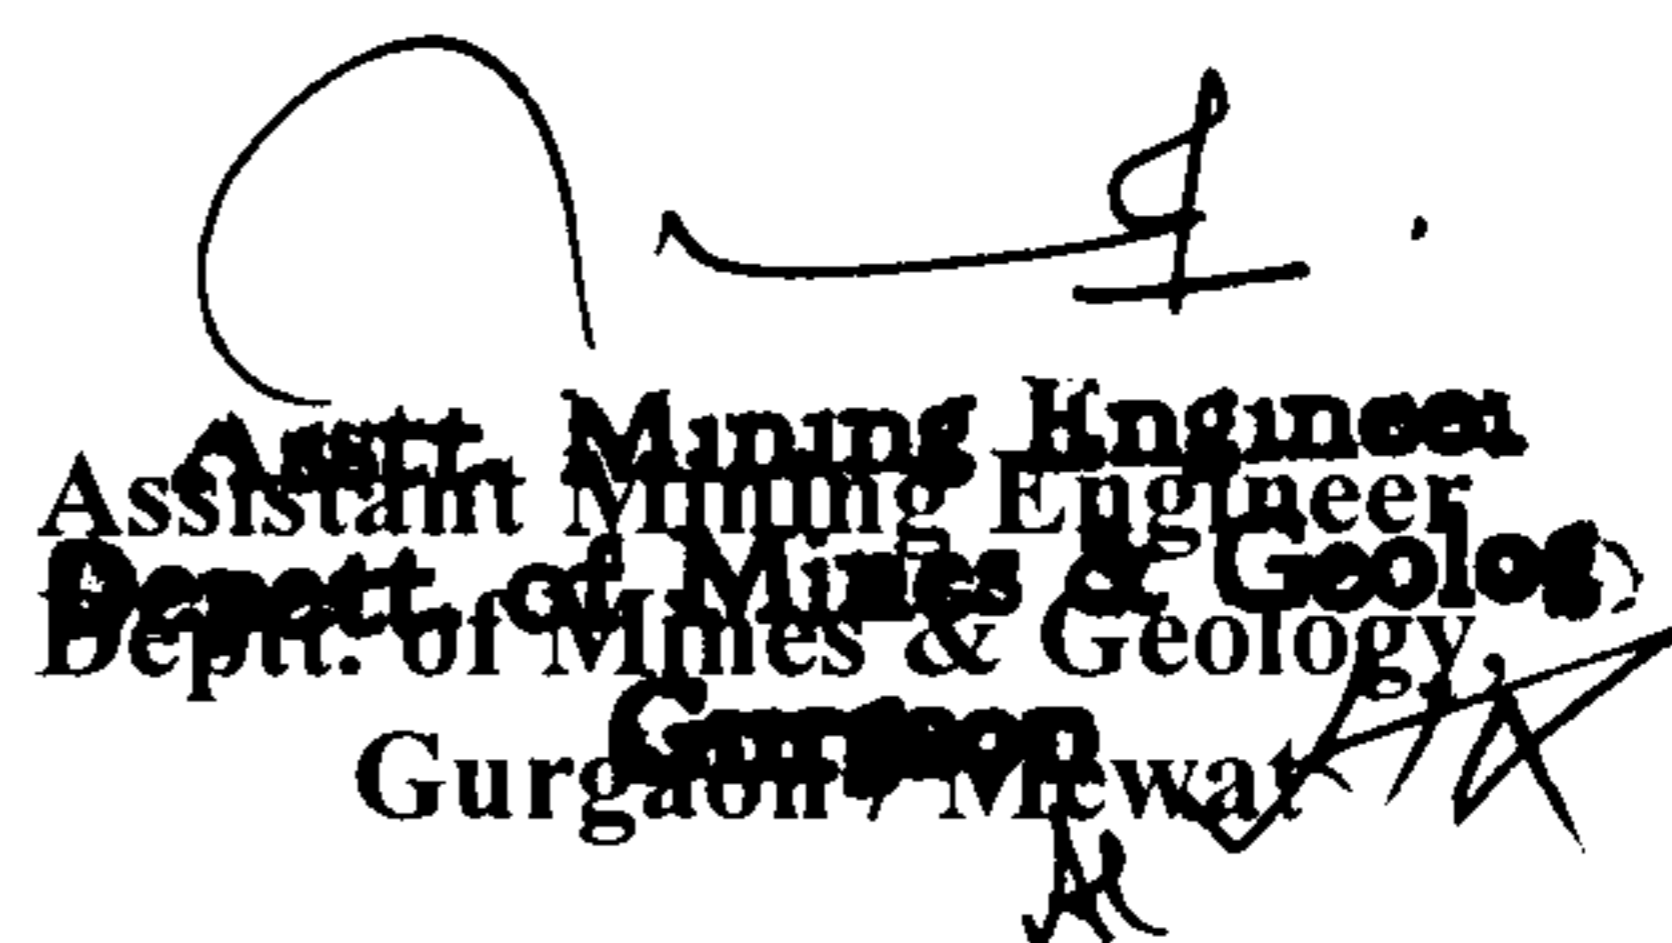 Asstt. Mining Engineer
Assistant Mining Engineer
Depett. of Mines & Geology
Deptt. of Mines & Geology,
Gurgaon
Gurgaon / Mewat